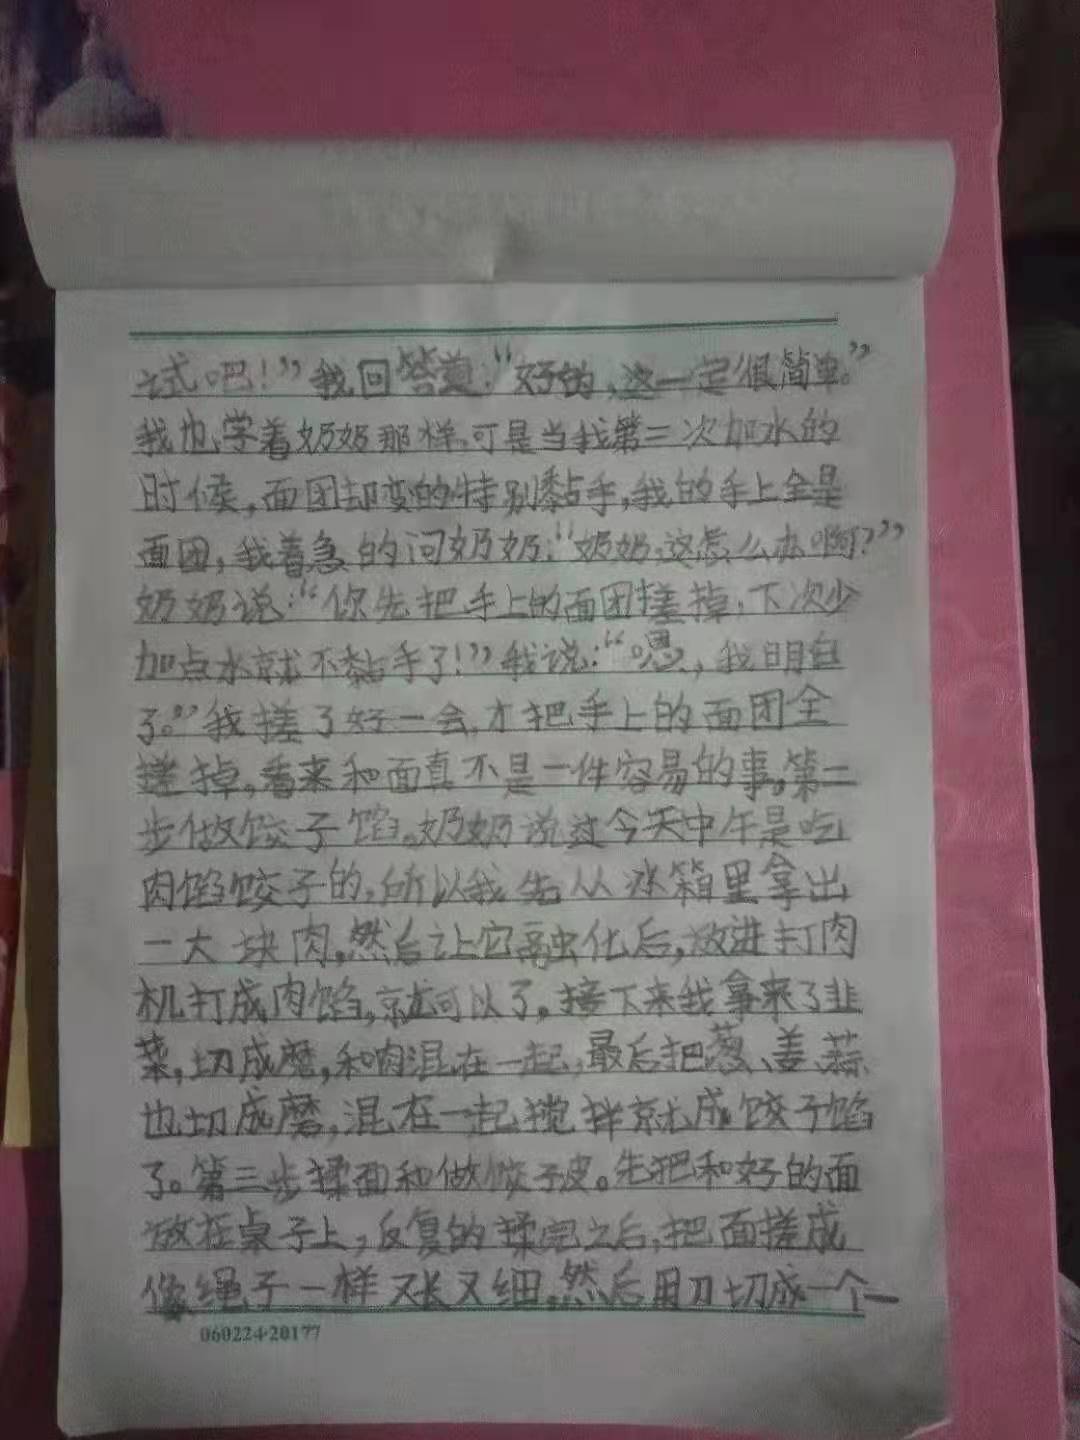 试吧！”我回答道：“好的，这一定很简单。”
我也学着奶奶那样，可是当我第三次加水的
时候，面团却变的特别黏手，我的手上全是
面团，我着急的问奶奶：“奶奶，这怎么办啊？”
奶奶说：“你先把手上的面团搓掉，下次少
加点水就不黏手了！”我说：“嗯，我明白
了。”我搓了好一会，才把手上的面团全
搓掉，看来和面真不是一件容易的事。第二
步做饺子馅。奶奶说过今天中午是吃
肉馅饺子的，所以我先从冰箱里拿出
一大块肉，然后让它融化后，放进打肉
机打成肉馅，就可以了。接下来我拿来了韭
菜，切成磨，和肉混在一起，最后把葱、姜、蒜
也切成磨，混在一起搅拌就成饺子馅
了。第三步揉面和做饺子皮。先把和好的面
放在桌子上，反复的揉完之后，把面搓成
像绳子一样又长又细，然后用刀切成一个一
060224·20177